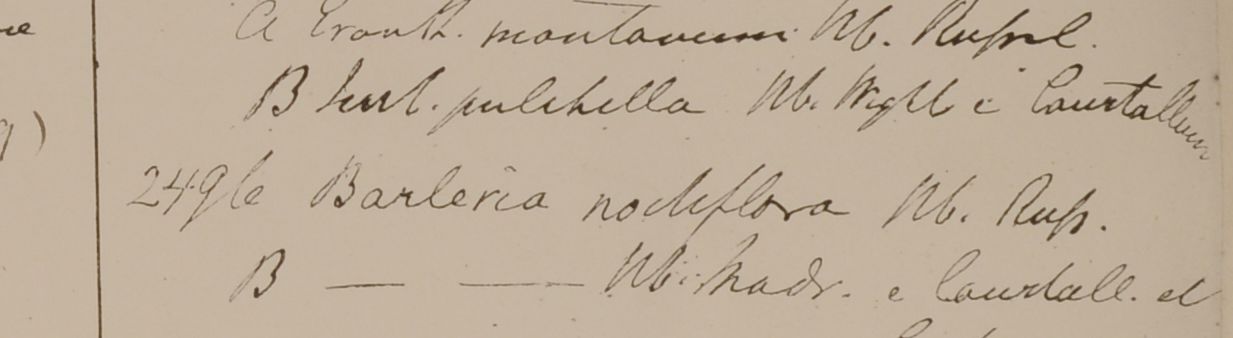 a Eranth. montanum Hb. Russel.
B Just. pulchella Hb. Wight e Courtallum
249 Barleria nodiflora Hb. Russ.
B — — Hb. Madr. e Courtall. et